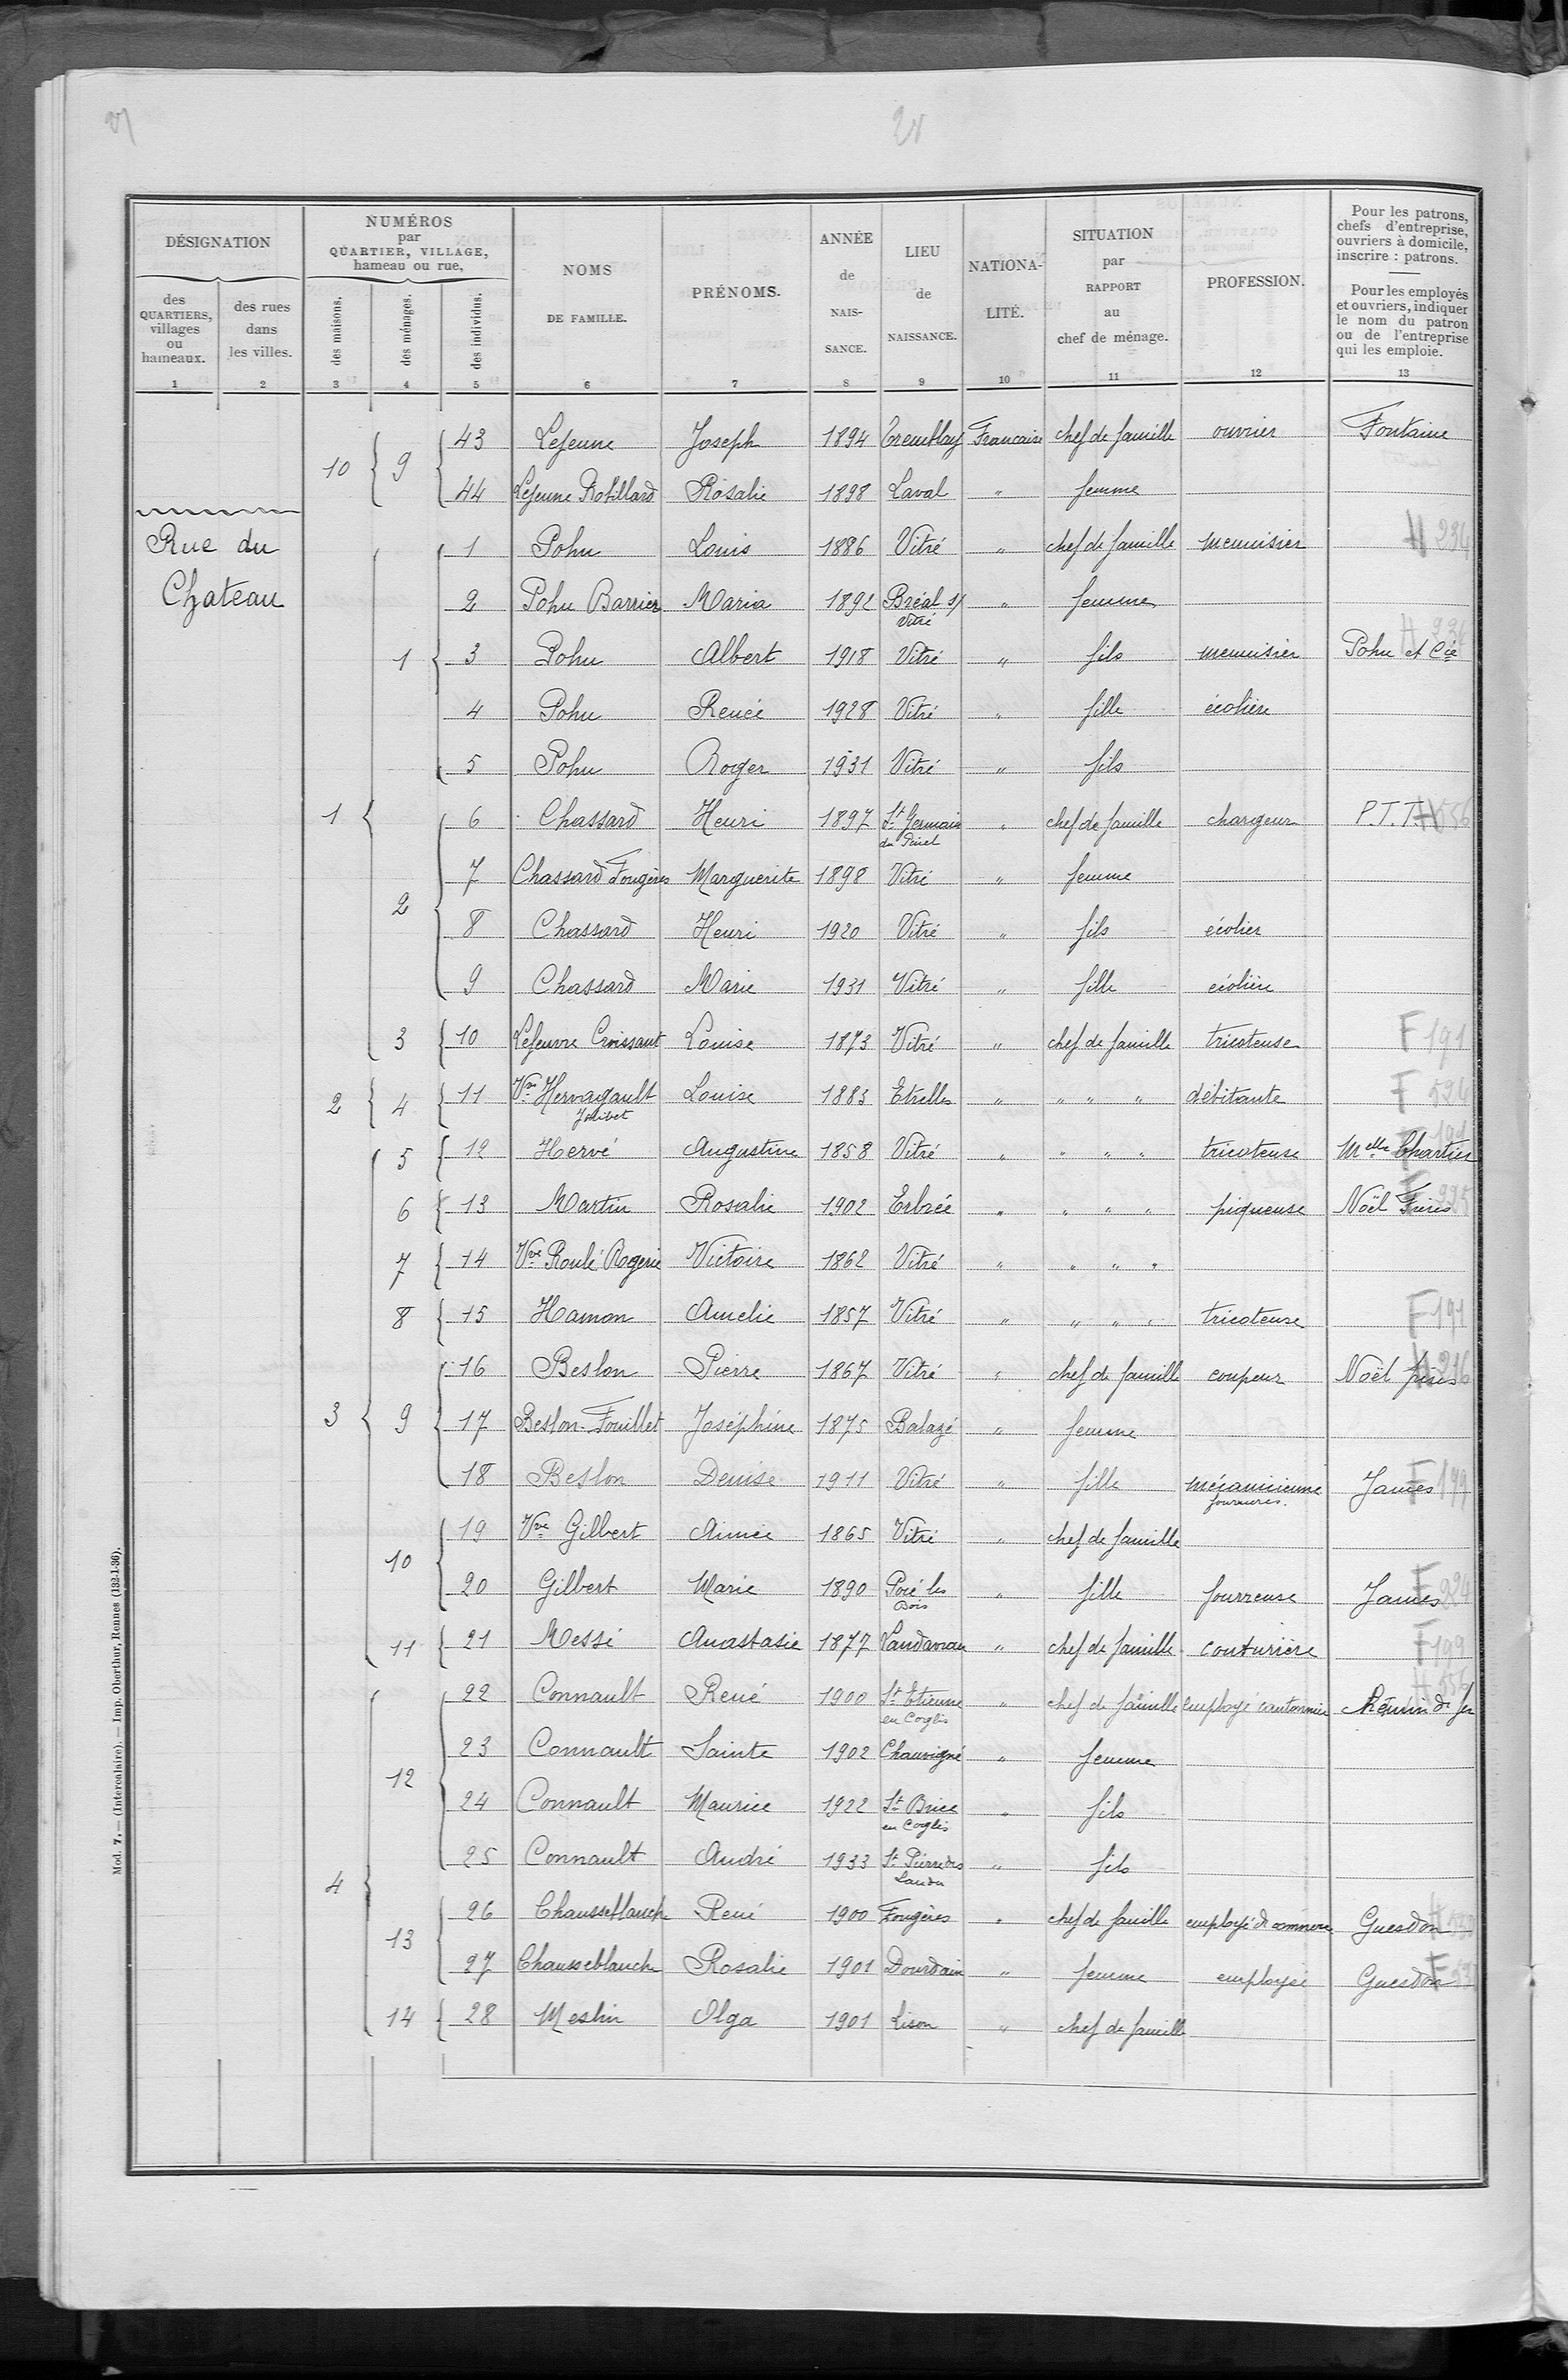 28
DÉSIGNATION
NUMÉROS
par
QUARTIER, VILLAGE,
hameau ou rue,
des
QUARTIERS,
villages
ou
hameaux.
des rues
dans
les villes.
des maisons.
des ménages.
des individus.
NOMS
DE FAMILLE.
PRÉNOMS.
ANNÉE
de
NAIS-
SANCE.
LIEU
de
NAISSANCE.
NATIONA-
LITÉ.
SITUATION
par
RAPPORT
au
chef de ménage.
PROFESSION.
Pour les patrons,
chefs d'entreprise,
ouvriers à domicile,
inscrire : patrons.
Pour les employés
et ouvriers, indiquer
le nom du patron
ou de l'entreprise
qui les emploie.
1 2 3 4 5 6 7 8 9 10 11 12 13
10 9 43 Lejeune Joseph 1894 Tremblay Francaise chef de famille ouvrier Fontaine
44 Lejeune Robillard Rosalie 1898 Laval " femme
Rue du Chateau
1 Pohu Louis 1886 Vitré " chef de famille menuisier H 234
2 Pohu Barrier Maria 1892 Bréal s/ Vitré " femme
1 3 Pohu Albert 1918 Vitré " fils menuisier Pohu et Cie H 234
4 Pohu Renée 1928 Vitré " fille écolière
5 Pohu Roger 1931 Vitré " fils
1 6 Chassard Henri 1897 St Germain du Pinel " chef de famille chargeur P.T.T. H 556
7 Chassard Fougères Marguerite 1898 Vitré " femme
2 8 Chassard Henri 1920 Vitré " fils écolier
9 Chassard Marie 1931 Vitré " fille écolière
3 10 Lefeuvre Croissant Louise 1873 Vitré " chef de famille tricoteuse F 191
2 4 11 Vve Hervagault Jolibet Louise 1883 Etrelles " " " " débitante F 524
5 12 Hervé Augustine 1858 Vitré " " " " tricoteuse Melle Chartier 191
6 13 Martin Rosalie 1902 Erbrée " " " " piqueuse Noël Frères 225
7 14 Vve Roulé Rogerie Victoire 1862 Vitré " " " "
8 15 Hamon Amelie 1857 Vitré " " " " tricoteuse F 191
16 Beslon Pierre 1867 Vitré " chef de famille coupeur Noël frères H 216
3 9 17 Beslon-Fouillet Joséphine 1875 Balazé " femme
18 Beslon Denise 1911 Vitré " fille mécanicienne fourrures. James F 199
19 Vve Gilbert Aimée 1865 Vitré " chef de famille
10 20 Gilbert Marie 1890 les Bois " fille fourreuse James F 224
11 21 Messé Anastasie 1877 Landavran " chef de famille couturière F 199
22 Connault René 1900 St Etienne en Coglès " chef de famille employé cantonnier Chemin de fer H 556
23 Connault Sainte 1902 Chauvigné " femme
12 24 Connault Maurice 1922 St Brice en Coglès " fils
25 Connault André 1933 St Pierre des Landes " fils
4 26 Chausseblanche René 1900 Fougères " chef de famille employé de commerce Guesdon
13 27 Chausseblanche Rosalie 1901 Dourdain " femme employée Guesdon
14 28 Meslin Olga 1901 Lison " chef de famille
Mod. 7. — (Intercalaire). — Imp. Oberthur, Rennes (132-1-36).